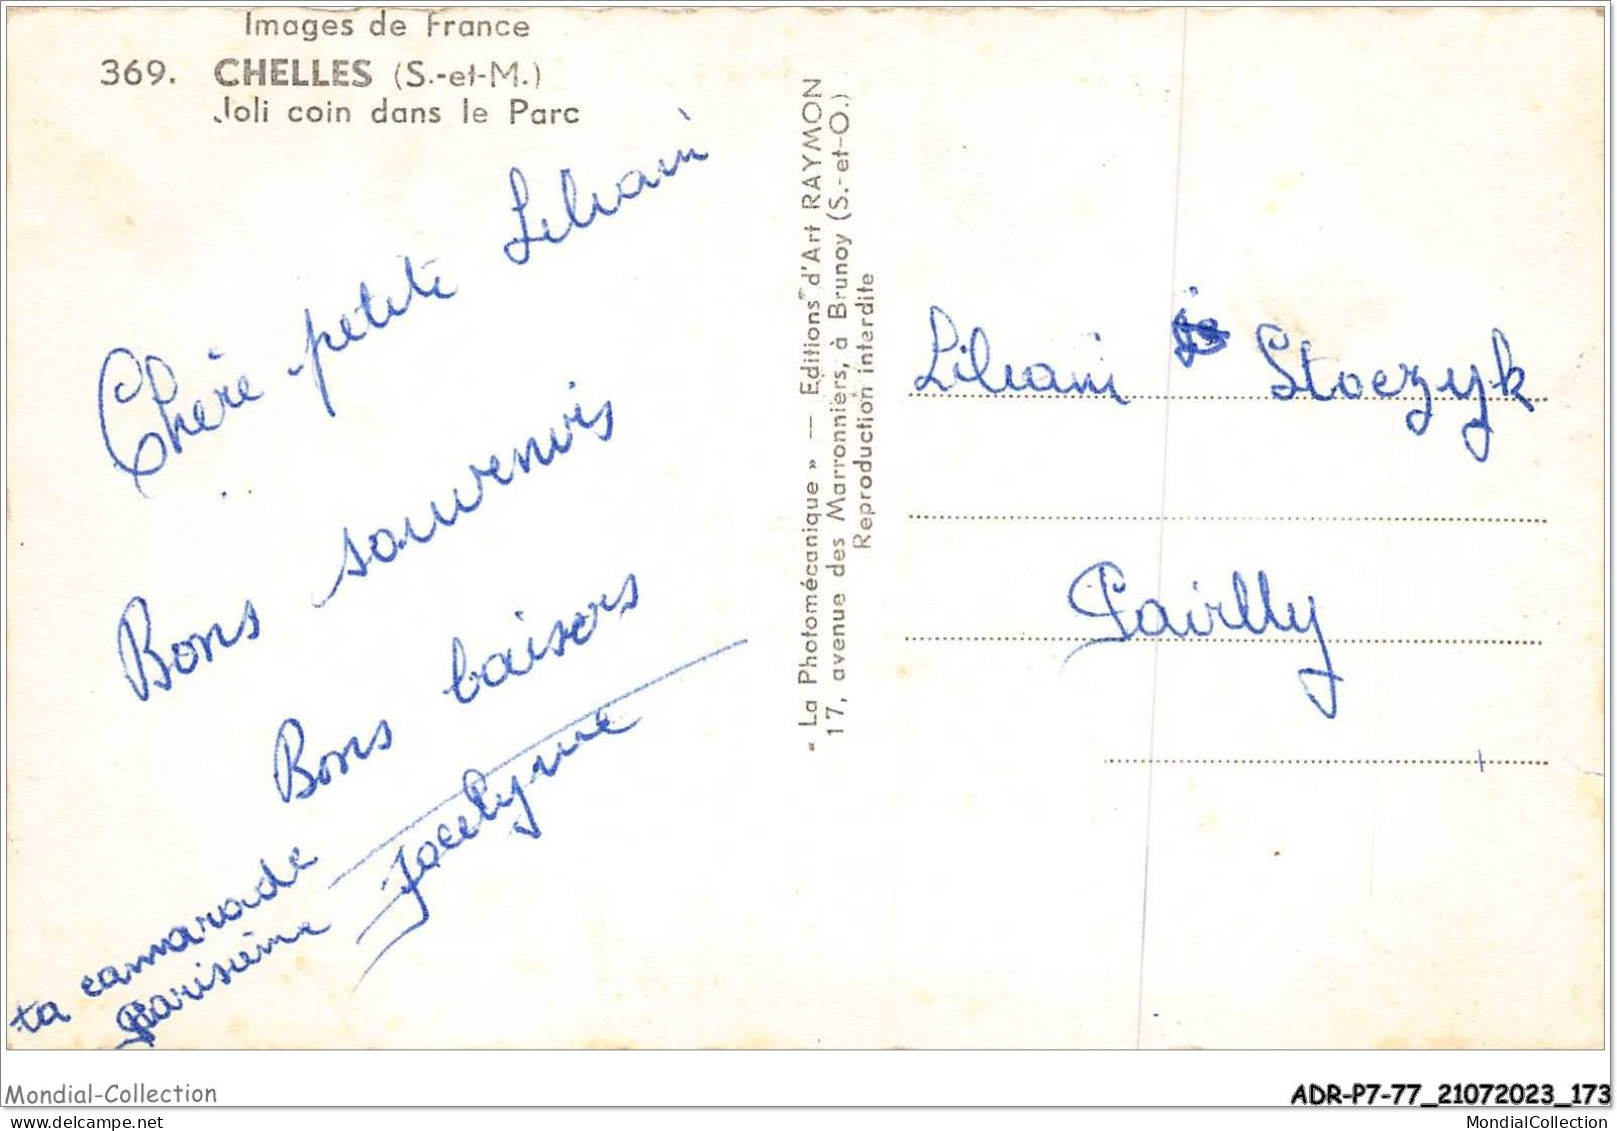 Images de France
369. CHELLES (S.-et-M.)
Joli coin dans le Parc
Chère petite Liliani
Bons souvenirs
Bons baisers
Jocelyne
ta camarade
parisienne
« La Photomécanique » — Editions d'Art RAYMON
17, avenue des Marronniers, à Brunoy (S.-et-O.)
Reproduction interdite
Liliani Stoczyk
Pavilly
Mondial-Collection
ADR-P7-77_21072023_173
delcampe.net
MondialCollection